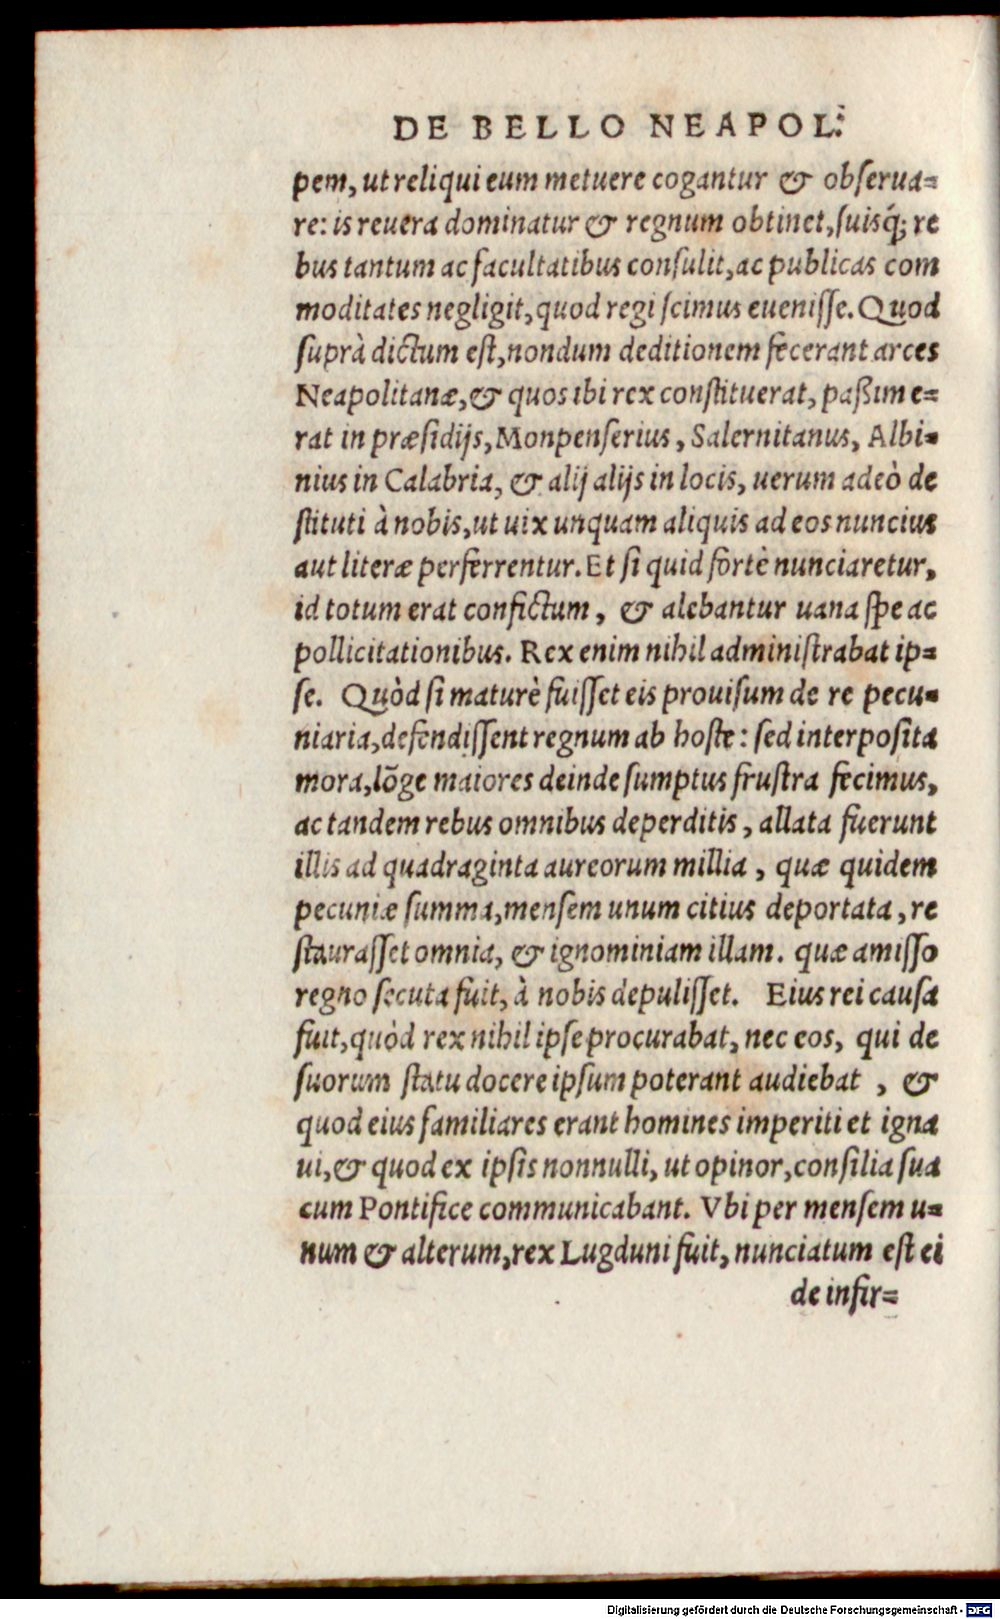 DE BELLO NEAPOL:
pem, ut reliqui eum metuere cogantur & obſerua=
re: is reuera dominatur & regnum obtinet, ſuisq́; re
bus tantum ac facultatibus conſulit, ac publicas com
moditates negligit, quod regi ſcimus eueniſſe. Quod
ſuprà dictum eſt, nondum deditionem fecerant arces
Neapolitanæ, & quos ibi rex conſtituerat, paßim e=
rat in præſidijs, Monpenſerius, Salernitanus, Albi=
nius in Calabria, & alij alijs in locis, uerum adeò de
ſtituti à nobis, ut uix unquam aliquis ad eos nuncius
aut literæ perferrentur. Et ſi quid fortè nunciaretur,
id totum erat confictum, & alebantur uana ſpe ac
pollicitationibus. Rex enim nihil adminiſtrabat ip=
ſe. Quòd ſi maturè fuiſſet eis prouiſum de re pecu=
niaria, defendiſſent regnum ab hoſte: ſed interpoſita
mora, lõge maiores deinde ſumptus fruſtra fecimus,
ac tandem rebus omnibus deperditis, allata fuerunt
illis ad quadraginta aureorum millia, quæ quidem
pecuniæ ſumma, menſem unum citius deportata, re
ſtauraſſet omnia, & ignominiam illam. quæ amiſſo
regno ſecuta fuit, à nobis depuliſſet. Eius rei cauſa
fuit, quòd rex nihil ipſe procurabat, nec eos, qui de
ſuorum ſtatu docere ipſum poterant audiebat, &
quod eius familiares erant homines imperiti et igna
ui, & quod ex ipſis nonnulli, ut opinor, conſilia ſua
cum Pontifice communicabant. Vbi per menſem u=
num & alterum, rex Lugduni fuit, nunciatum eſt ei
de infir=
Digitalisierung gefördert durch die Deutsche Forschungsgemeinschaft - DFG